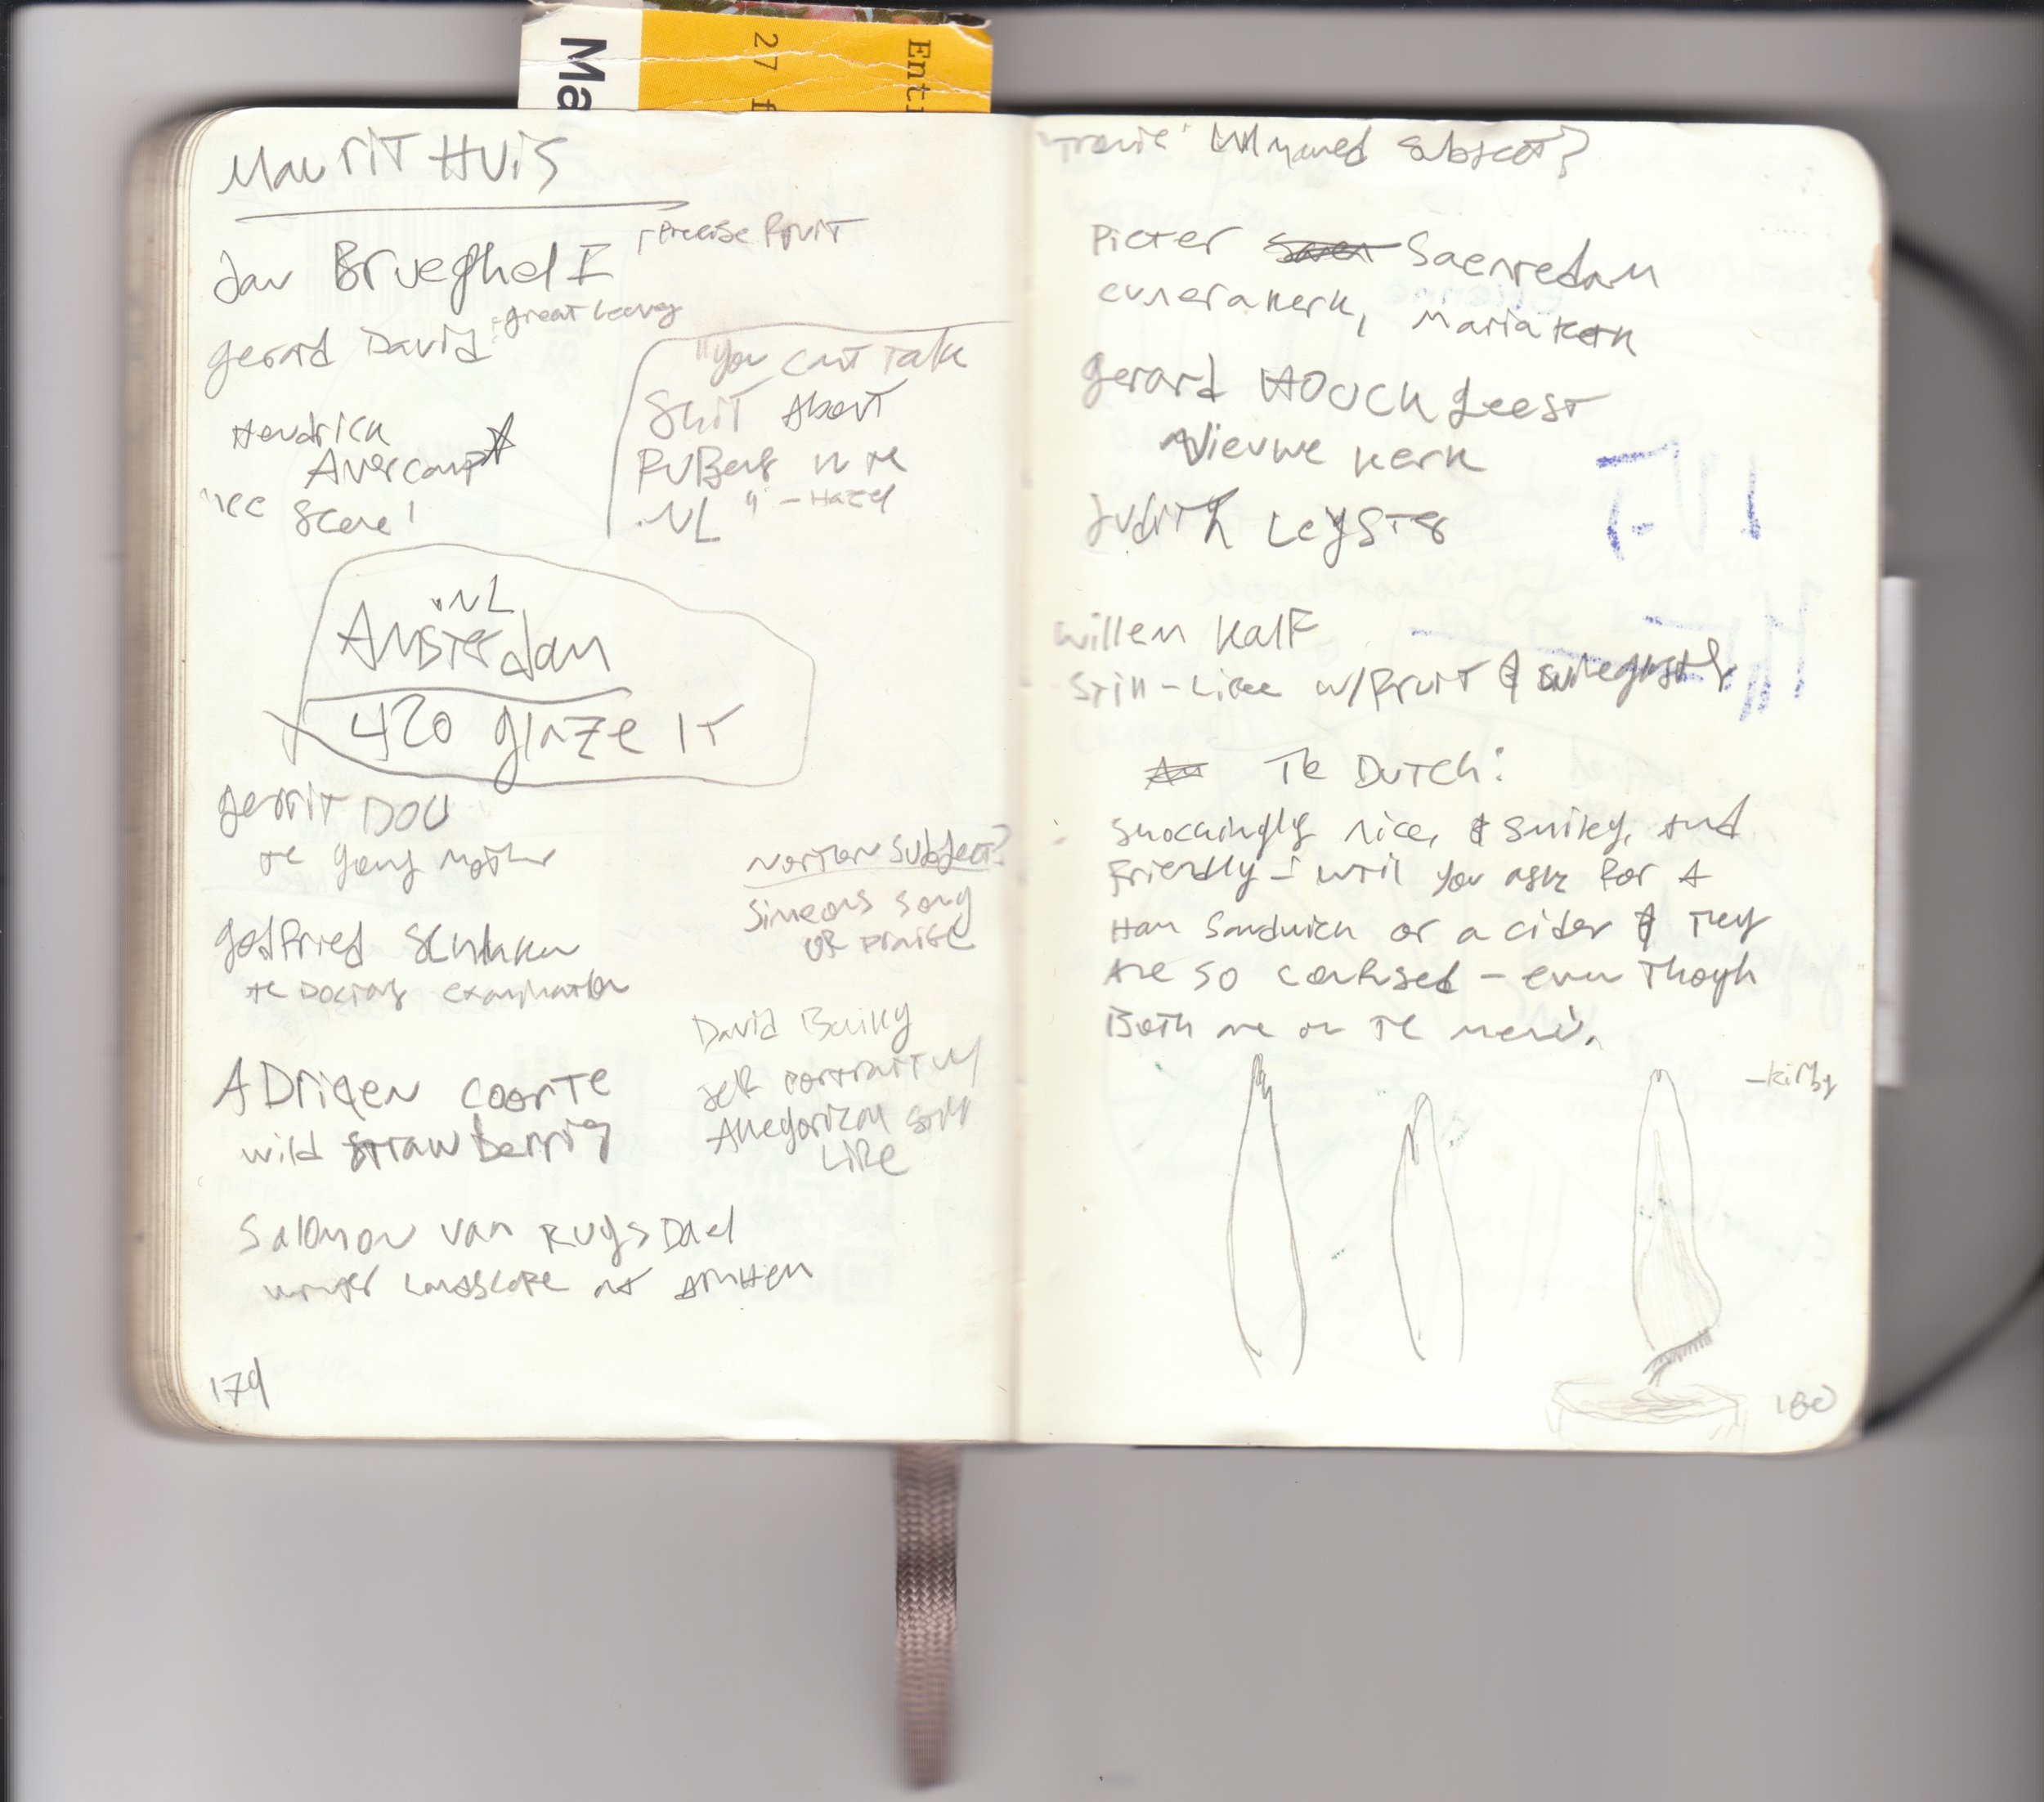 Ma
27 f
Entr
MauritHuis
Jan Brueghel I
Precise fruit
gerard David
:great leaves
Hendrick
Avercamp
"ice scene"
"you cant talk
Shit About
RuBens in the
NL" - Hazel
NL
Amsterdam
420 glaze it
gerrit DOU
the young mother
Norton subject?
Simeons song
of praise
godfried Schalcken
the Doctors examination
David Bailly
self portrait w/
Allegorical still
life
ADriaen coorte
wild strawberries
Salomon van Ruysdael
winter landscape at Arnhem
179
"Tronie" Unnamed subject?
Pieter Saenredam
cunerakerk, Mariakerk
gerard Houckgeest
Nieuwe kerk
Judith Leyster
Willem Kalf
Still-life w/fruit &
The Dutch:
shockingly nice, & smiley, and
friendly - until you ask for A
Ham Sandwich or a cider & they
Are so confused - even though
Both are on the menu.
-Kirby
180